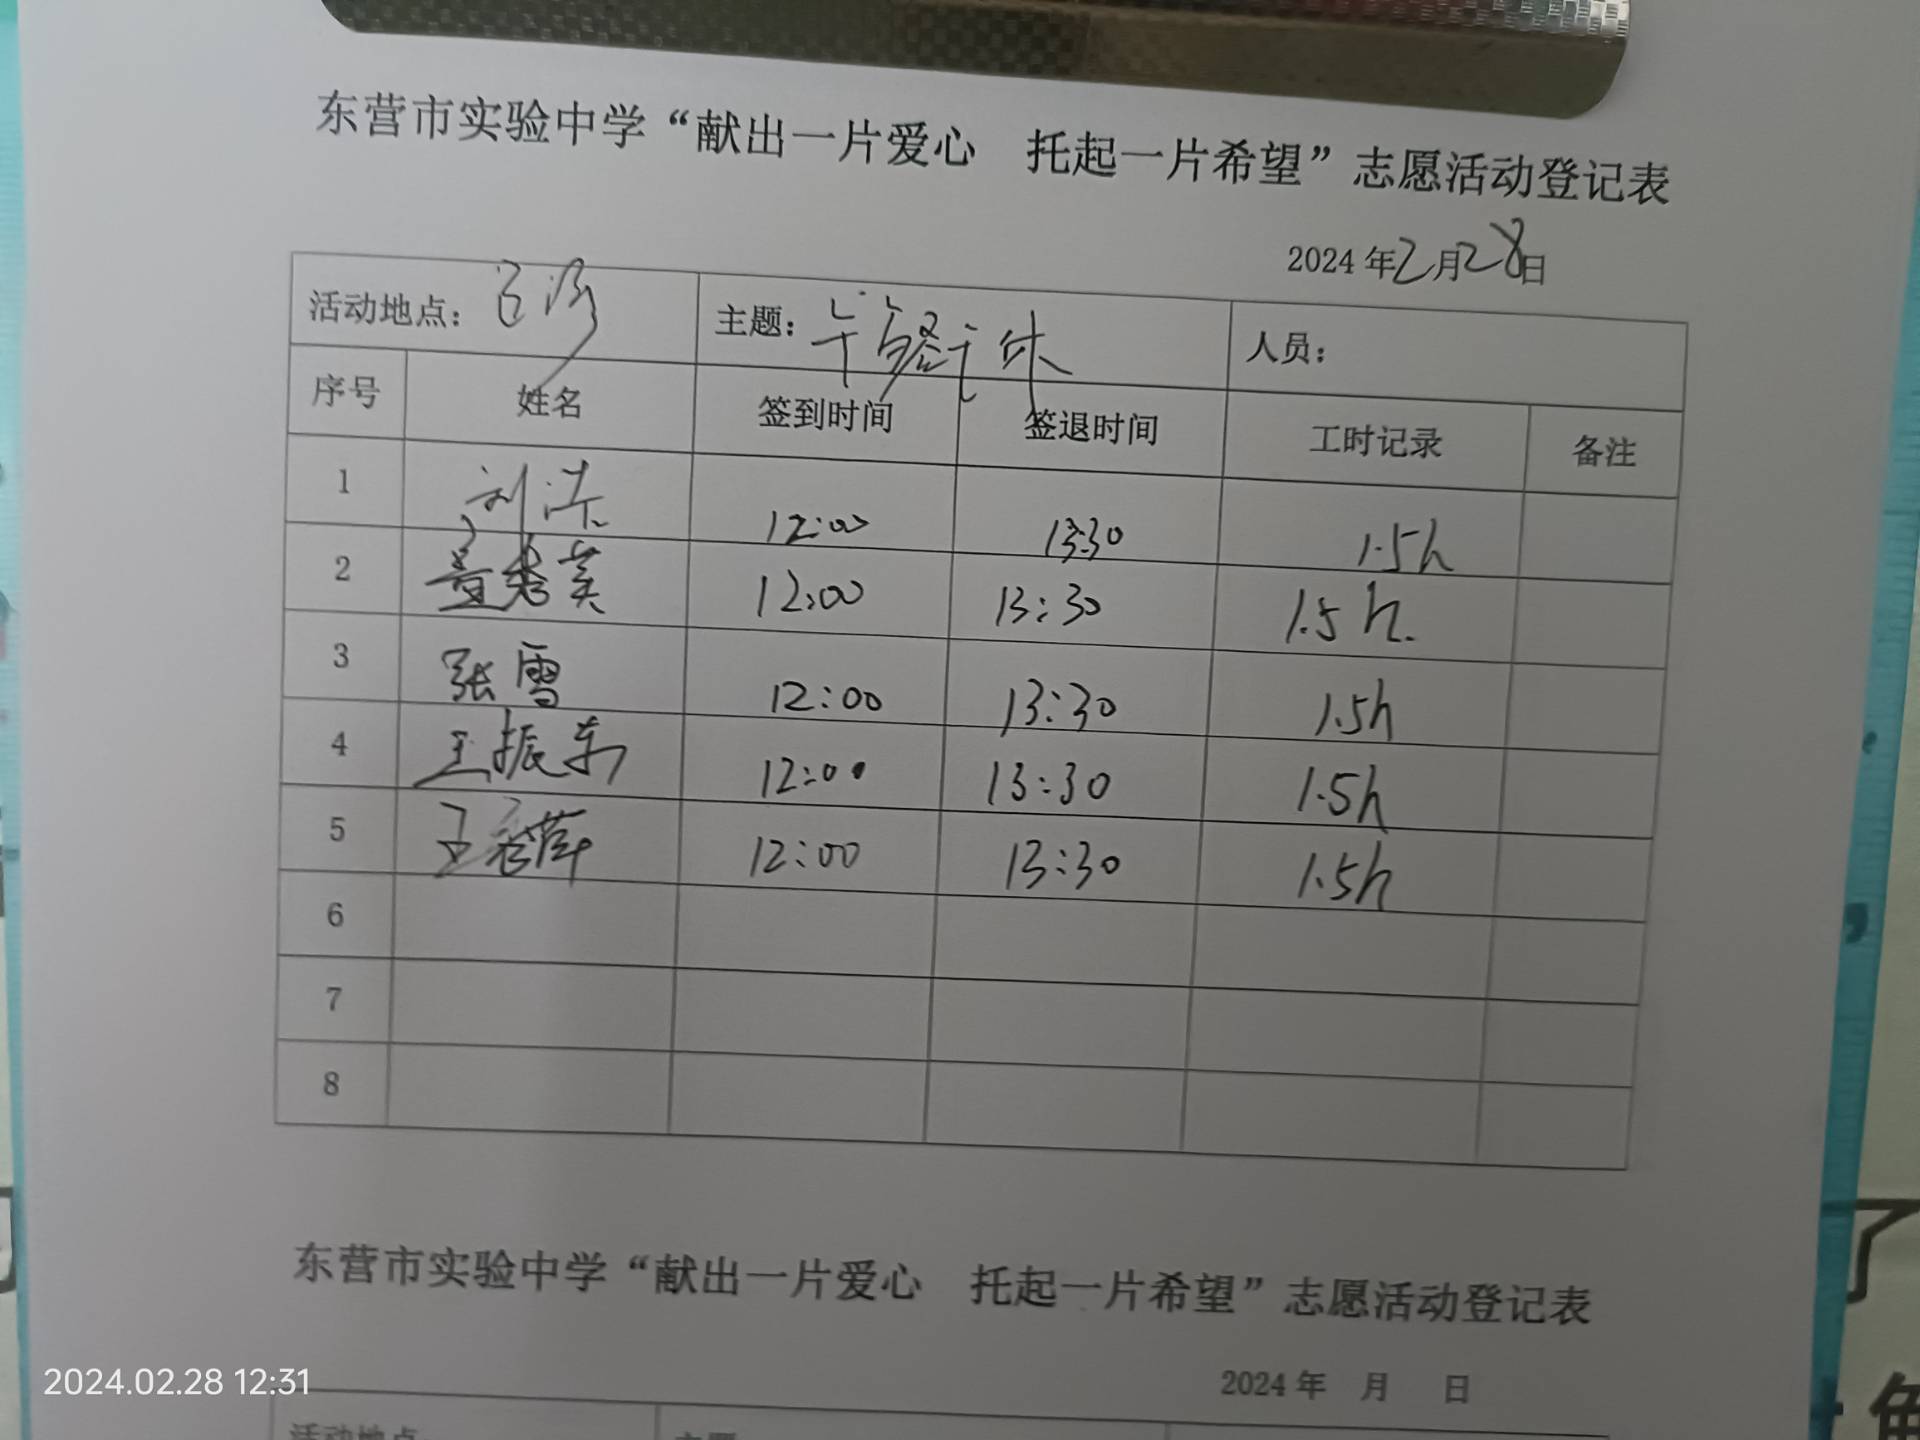 东营市实验中学“献出一片爱心 托起一片希望”志愿活动登记表
2024年2月28日
活动地点： 主题：午餐午休 人员：
序号 姓名 签到时间 签退时间 工时记录 备注
1 刘洪 12:00 13:30 1.5h
2 秀英 12:00 13:30 1.5h.
3 张雪 12:00 13:30 1.5h
4 王振东 12:00 13:30 1.5h
5 王 萍 12:00 13:30 1.5h
6
7
8
东营市实验中学“献出一片爱心 托起一片希望”志愿活动登记表
2024年 月 日
活动地点
主题
2024.02.28 12:31
了
解